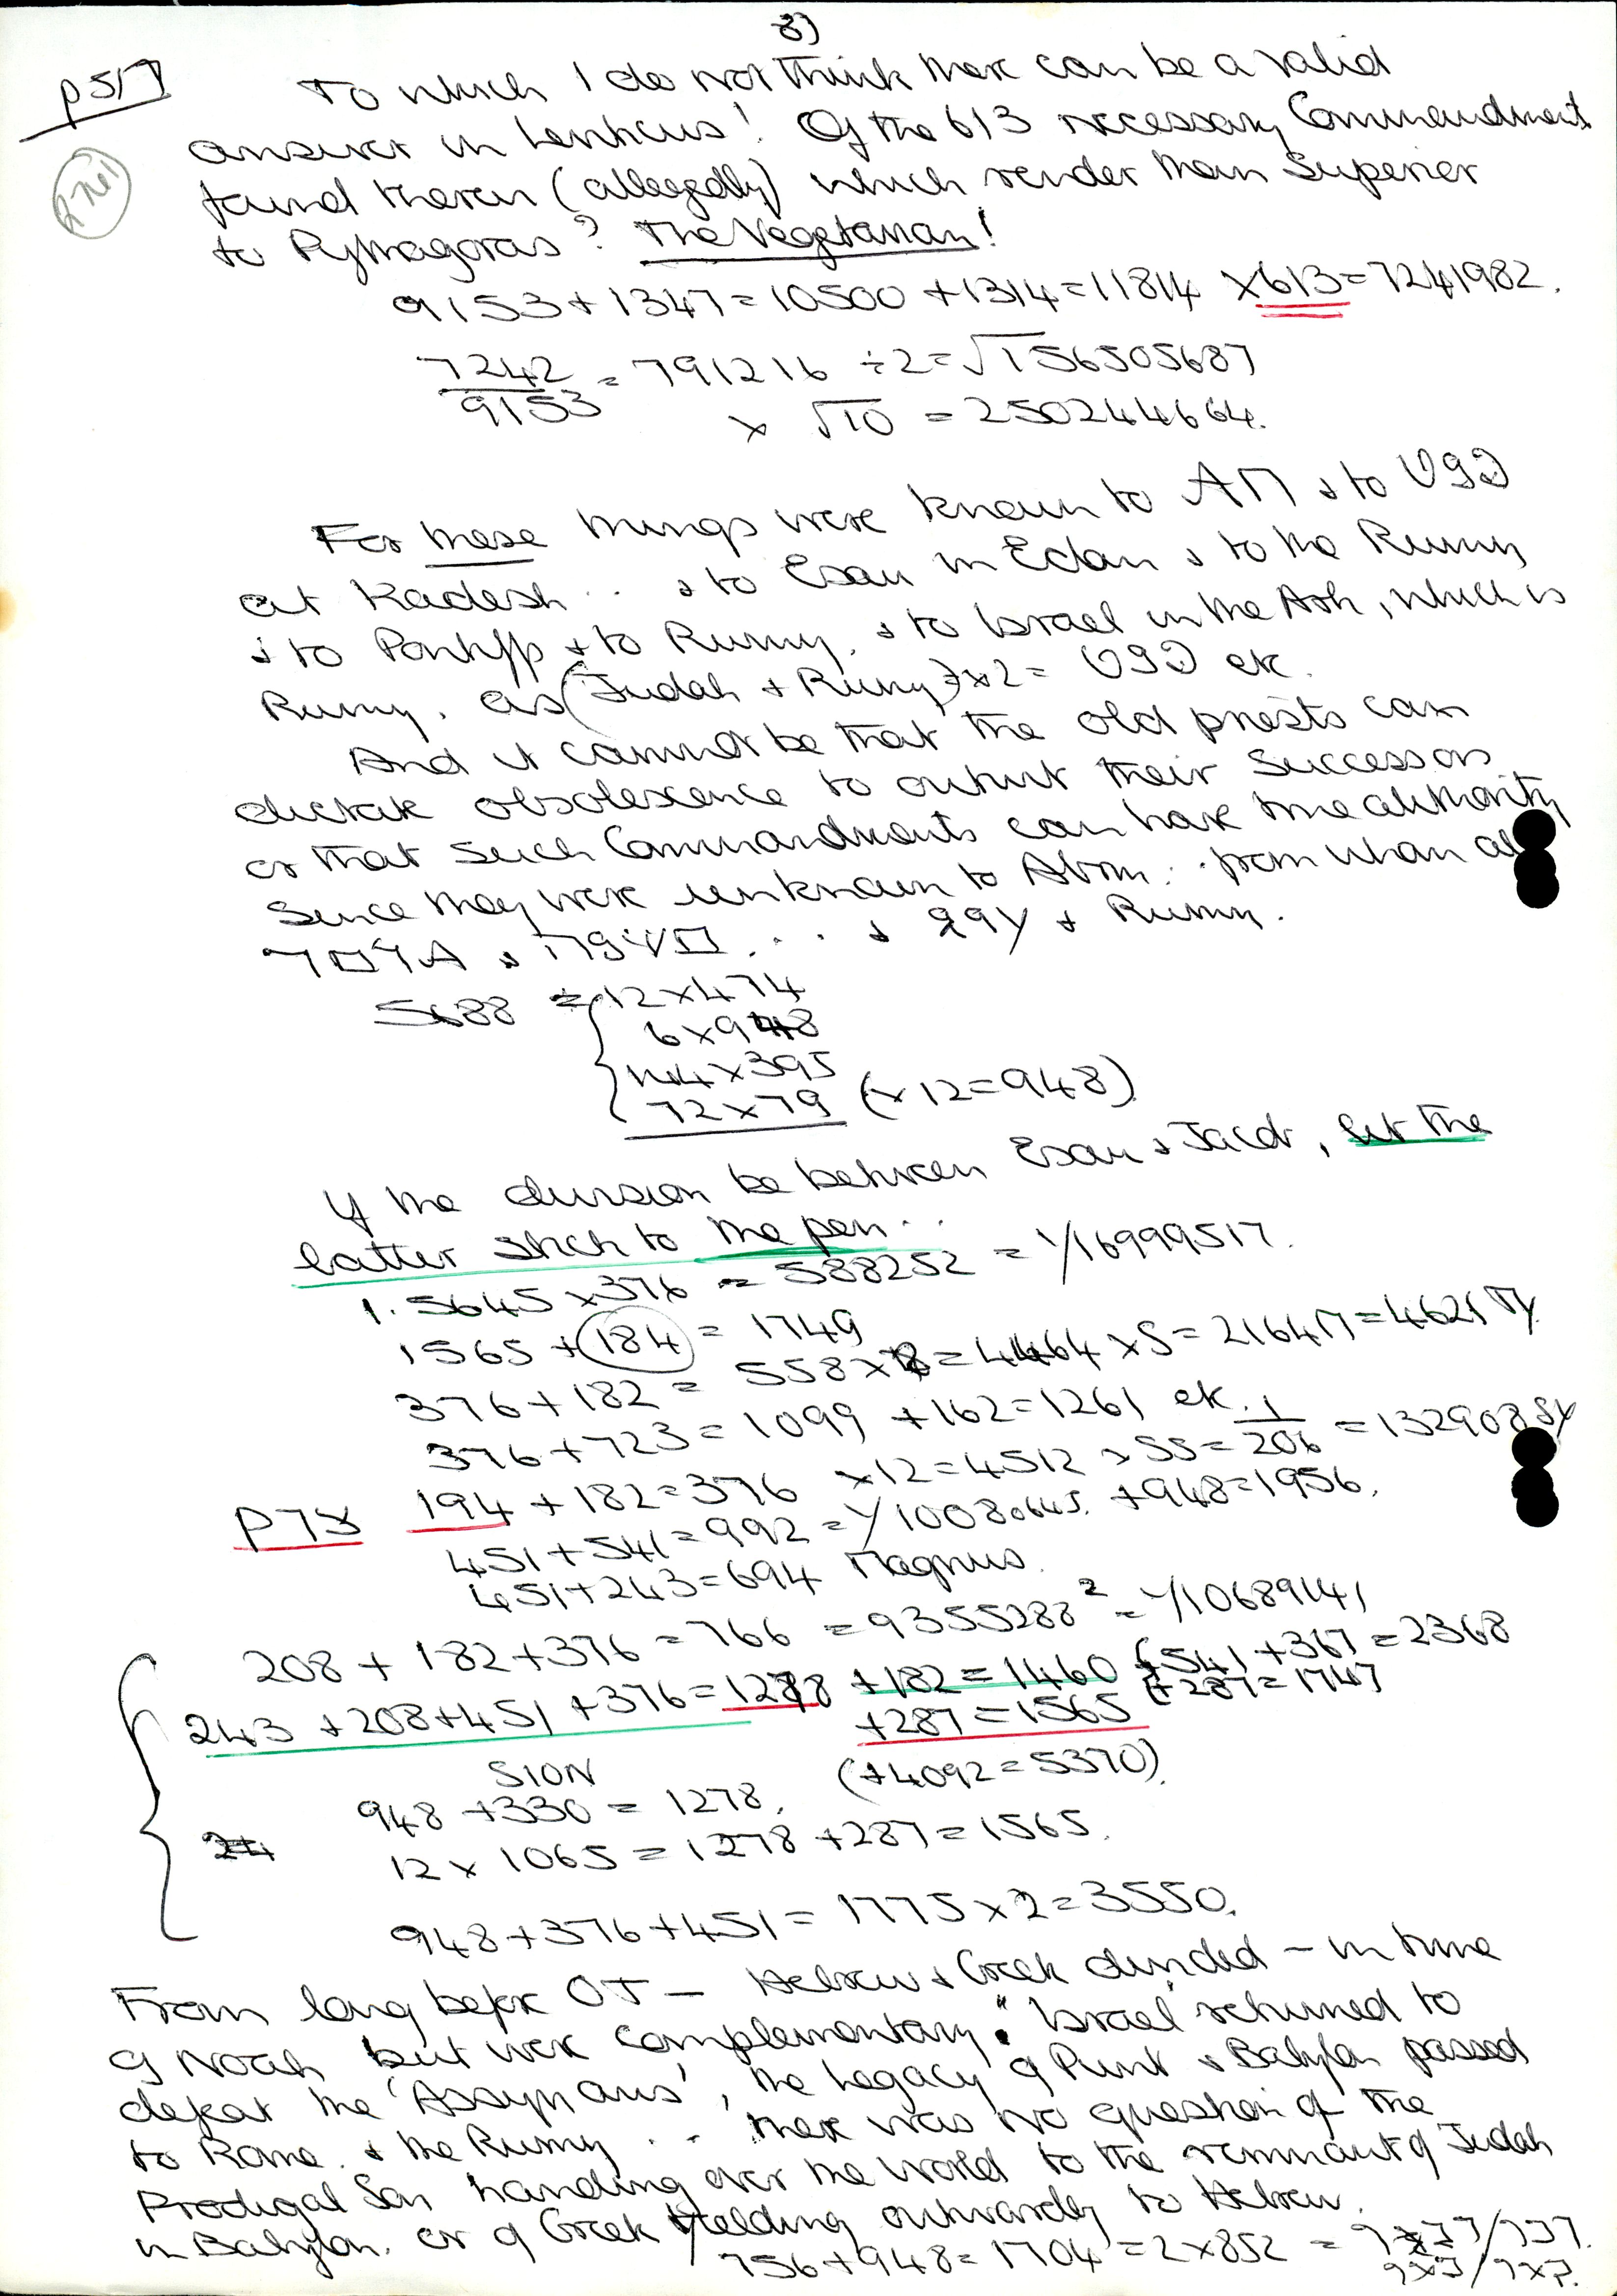 8)
p517
To which I do not think there can be a valid
answer in Leviticus! Of the 613 necessary Commandments
found therein (allegedly) which render them superior
to Pythagoras? The Vegetarian!
9153 + 1347 = 10500 + 1314 = 11814 × 613 = 7241982.
7242/9153 = 791216 ÷ 2 = √156505687
× √10 = 250244664.
For these things were known to ΑΠ & to
at Kadesh .. & to Esau in Edom & to the Rumy
& to Pontiff & to Rumy, & to Israel in the Ark, which is
Rumy. as (Judah + Rumy) × 2 = etc.
And it cannot be that the old priests can
dictate obsolescence to outwit their successors
or that such Commandments can have time authority
since they were unknown to Abrm .. from whom all
& & Rumy.
5688 = 12 × 474
6 × 948
144 × 395
72 × 79 (× 12 = 948)
If the division be between Esau & Jacob, let the
latter stick to the pen ..
1.5645 × 376 = 588252 = 1/16999517.
1565 + 184 = 1749
376 + 182 = 558 × 8 = 4464 × 5 = 2164Π = 4621
376 + 723 = 1099 + 162 = 1261 etc.
p78 194 + 182 = 376 × 12 = 4512 × 55 = 1/206 = 132908
451 + 541 = 992 = 1/10080645. + 948 = 1956.
451 + 243 = 694 Magnus.
208 + 182 + 376 = 766 = 9355288² = 1/10689141
243 + 208 + 451 + 376 = 1278 + 182 = 1460 (+541 + 367 = 2368
+ 287 = 1565 (+287 = 1747
SION (+4092 = 5370).
948 + 330 = 1278.
12 × 1065 = 1278 + 287 = 1565.
948 + 376 + 451 = 1775 × 2 = 3550.
From long before OT - Hebrew & Greek divided - in time
of Noah but were complementary. "Israel" returned to
defeat the 'Assyrians', the Legacy of Punt & Babylon passed
to Rome. & the Rumy .. there was no question of the
Prodigal Son handing over the world to the remnant of Judah
in Babylon. or of Greek yielding outwardly to Hebrew.
756 + 948 = 1704 = 2 × 852 =